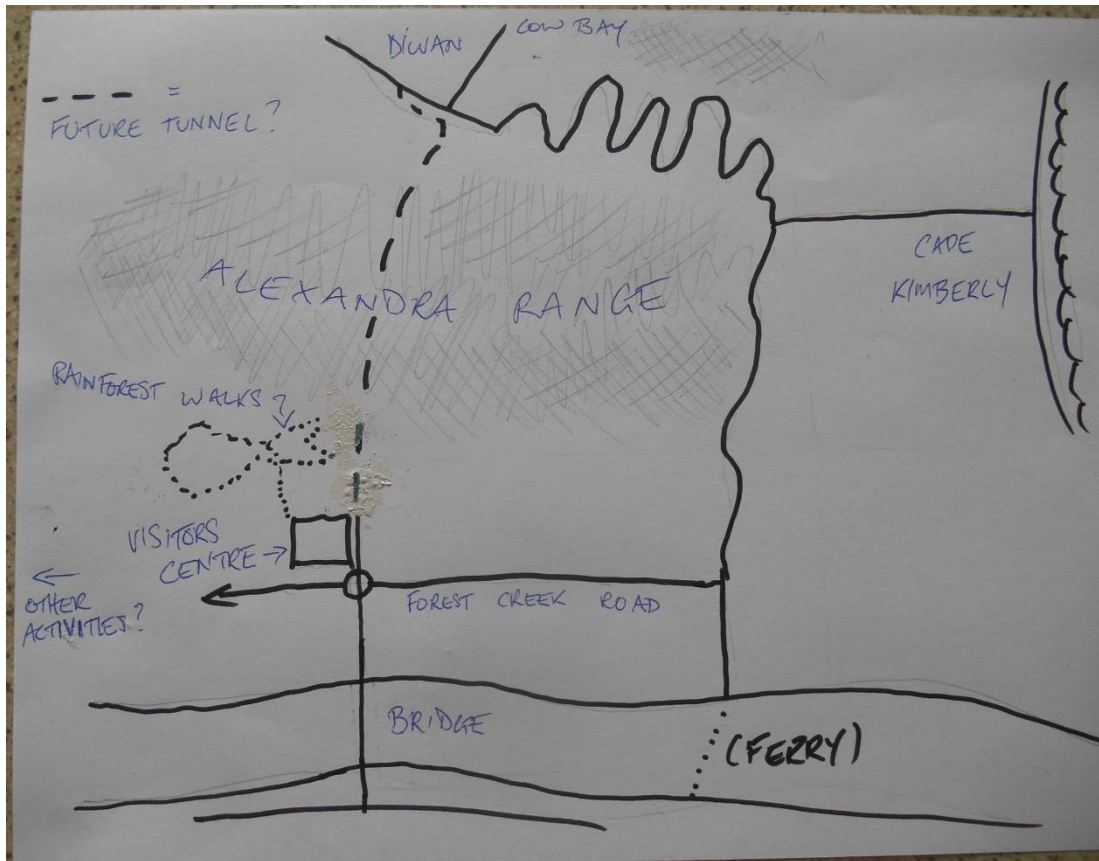 DIWAN
COW BAY
=
FUTURE TUNNEL?
CAPE
KIMBERLY
ALEXANDRA RANGE
RAINFOREST WALKS?
VISITORS
CENTRE
OTHER
ACTIVITIES?
FOREST CREEK ROAD
BRIDGE
(FERRY)